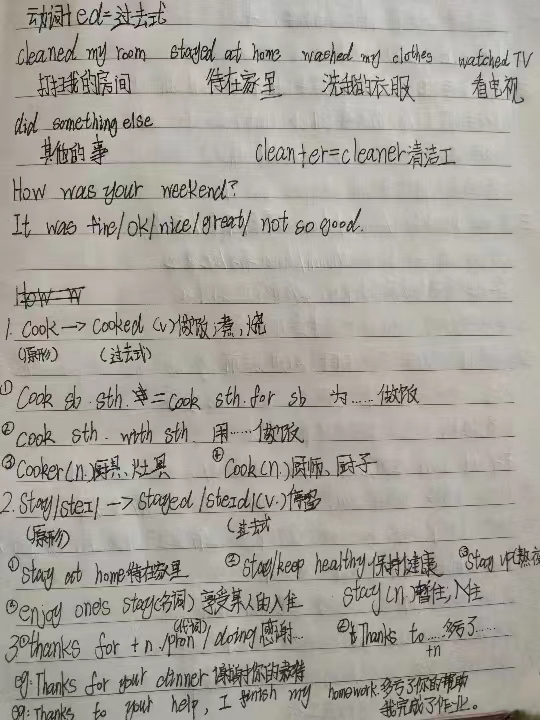 动词+ed=过去式
cleaned my room stayed at home washed my clothes watched TV
打扫我的房间 待在家里 洗我的衣服 看电视
did something else
其他的事 clean+er=cleaner清洁工
How was your weekend?
It was fine/ok/nice/great/ not so good.
How w
1. Cook → Cooked (v)做饭,煮,烧
(原形) (过去式)
① Cook sb. sth. = cook sth. for sb 为……做饭
② cook sth. with sth 用……做饭
③ Cooker(n.)厨具,灶具 ④ Cook(n.)厨师、厨子
2. Stay/steI/ → Stayed /steId/(v.)停留
(原形) (过去式
① stay at home待在家里 ② stay/keep healthy保持健康 ③ stay up(熬夜
④ enjoy one's stay(名词) 享受某人的入住 stay(n.)暂住,入住
3① thanks for + n./pron(代词)/doing感谢… ② Thanks to……多亏了……
+n
eg: Thanks for your dinner 谢谢你的款待
eg: Thanks to your help, I finish my homework.多亏了你的帮助
我完成了作业。